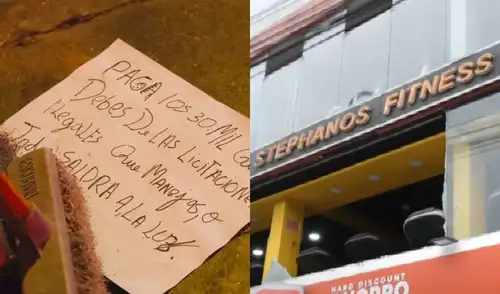 PAGA 10S 30.MIL Q
Debes De LAS LICITACIONE
ILegALES Que MANejas, o
Todo SALDRA A, LA LUZ.
STEPHANOS FITNESS
HARD DISCOUNT